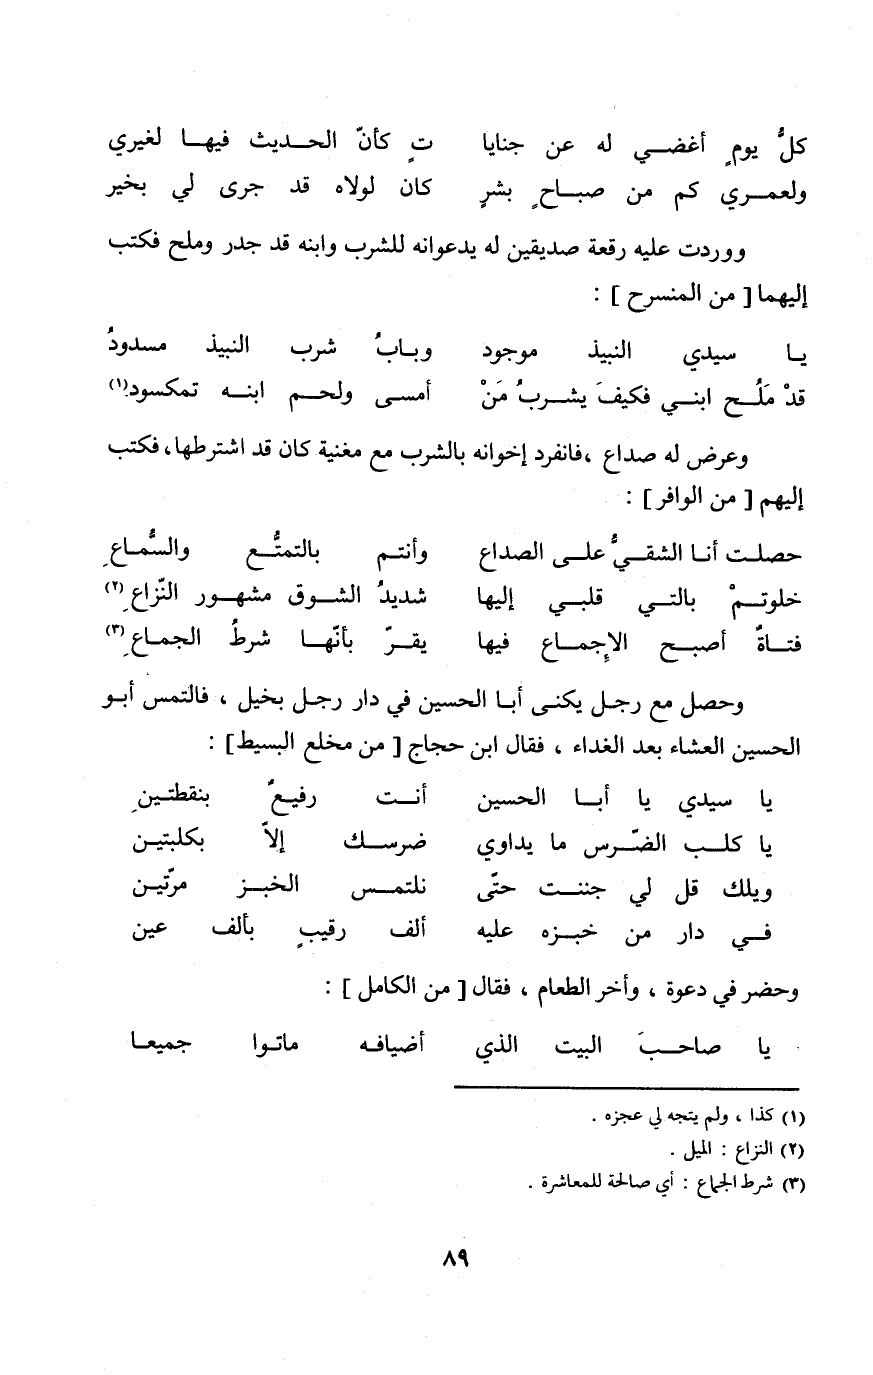 كلُّ يومٍ أغضـــي له عن جنايا تٍ كأنّ الحـــديث فيهـا لغيري
ولعمـــري كم من صبـاحٍ بشرٍ كان لولاه قد جرى لي بخير
ووردت عليه رقعة صديقين له يدعوانه للشرب وابنه قد جدر وملح فكتب
إليهما [ من المنسرح ] :
يـا سيدي النبيذ موجود وبـابُ شرب النبيذ مسدودُ
قدْ مَلُـح ابنـي فكيفَ يشـربُ مَنْ أمسـى ولحـم ابنـه تمكسود(١)
وعرض له صداع ،فانفرد إخوانه بالشرب مع مغنية كان قد اشترطها، فكتب
إليهم [ من الوافر ] :
حصلـت أنـا الشقـيُّ علـى الصداع وأنتـم بالتمتُّـع والسُّمـاعِ
خلوتـمْ بالتـي قلبـي إليها شديدُ الشـوق مشهـور النّزاعِ (٢)
فتـاةٌ أصبـح الإجمـاع فيها يقـرّ بأنّهـا شرطُ الجمـاعِ (٣)
وحصل مع رجل يكنى أبا الحسين في دار رجل بخيل ، فالتمس أبو
الحسين العشاء بعد الغداء ، فقال ابن حجاج [ من مخلع البسيط ] :
يا سيدي يا أبـا الحسين أنـت رفيعٌ بنقطتـينِ
يا كلـب الضّرس ما يداوي ضرسـك إلاّ بكلبتيـن
ويلك قل لي جننـت حتّى نلتمـس الخبـز مرّتيـن
فـي دار من خبـزه عليه ألف رقيبٍ بألف عين
وحضر في دعوة ، وأخر الطعام ، فقال [ من الكامل ] :
يا صاحـبَ البيت الذي أضيافـه ماتـوا جميعـا
(١) كذا ، ولم يتجه لي عجزه .
(٢) النزاع : الميل .
(٣) شرط الجماع : أي صالحة للمعاشرة .
٨٩